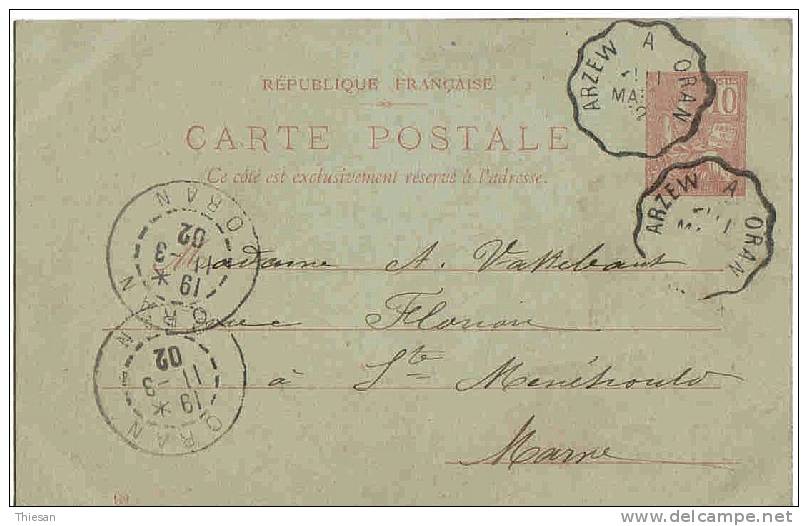 ARZEW A ORAN
11
MA
10
RÉPUBLIQUE FRANÇAISE
CARTE POSTALE
Ce côté est exclusivement réservé à l'adresse.
ARZEW A ORAN
ORAN
19 *
11 3
02
ORAN
Madame A.
rue Florion
à Ste Menéhould
Marne
ORAN
19 *
11 -3
02
ORAN
Thiesan
www.delcampe.net